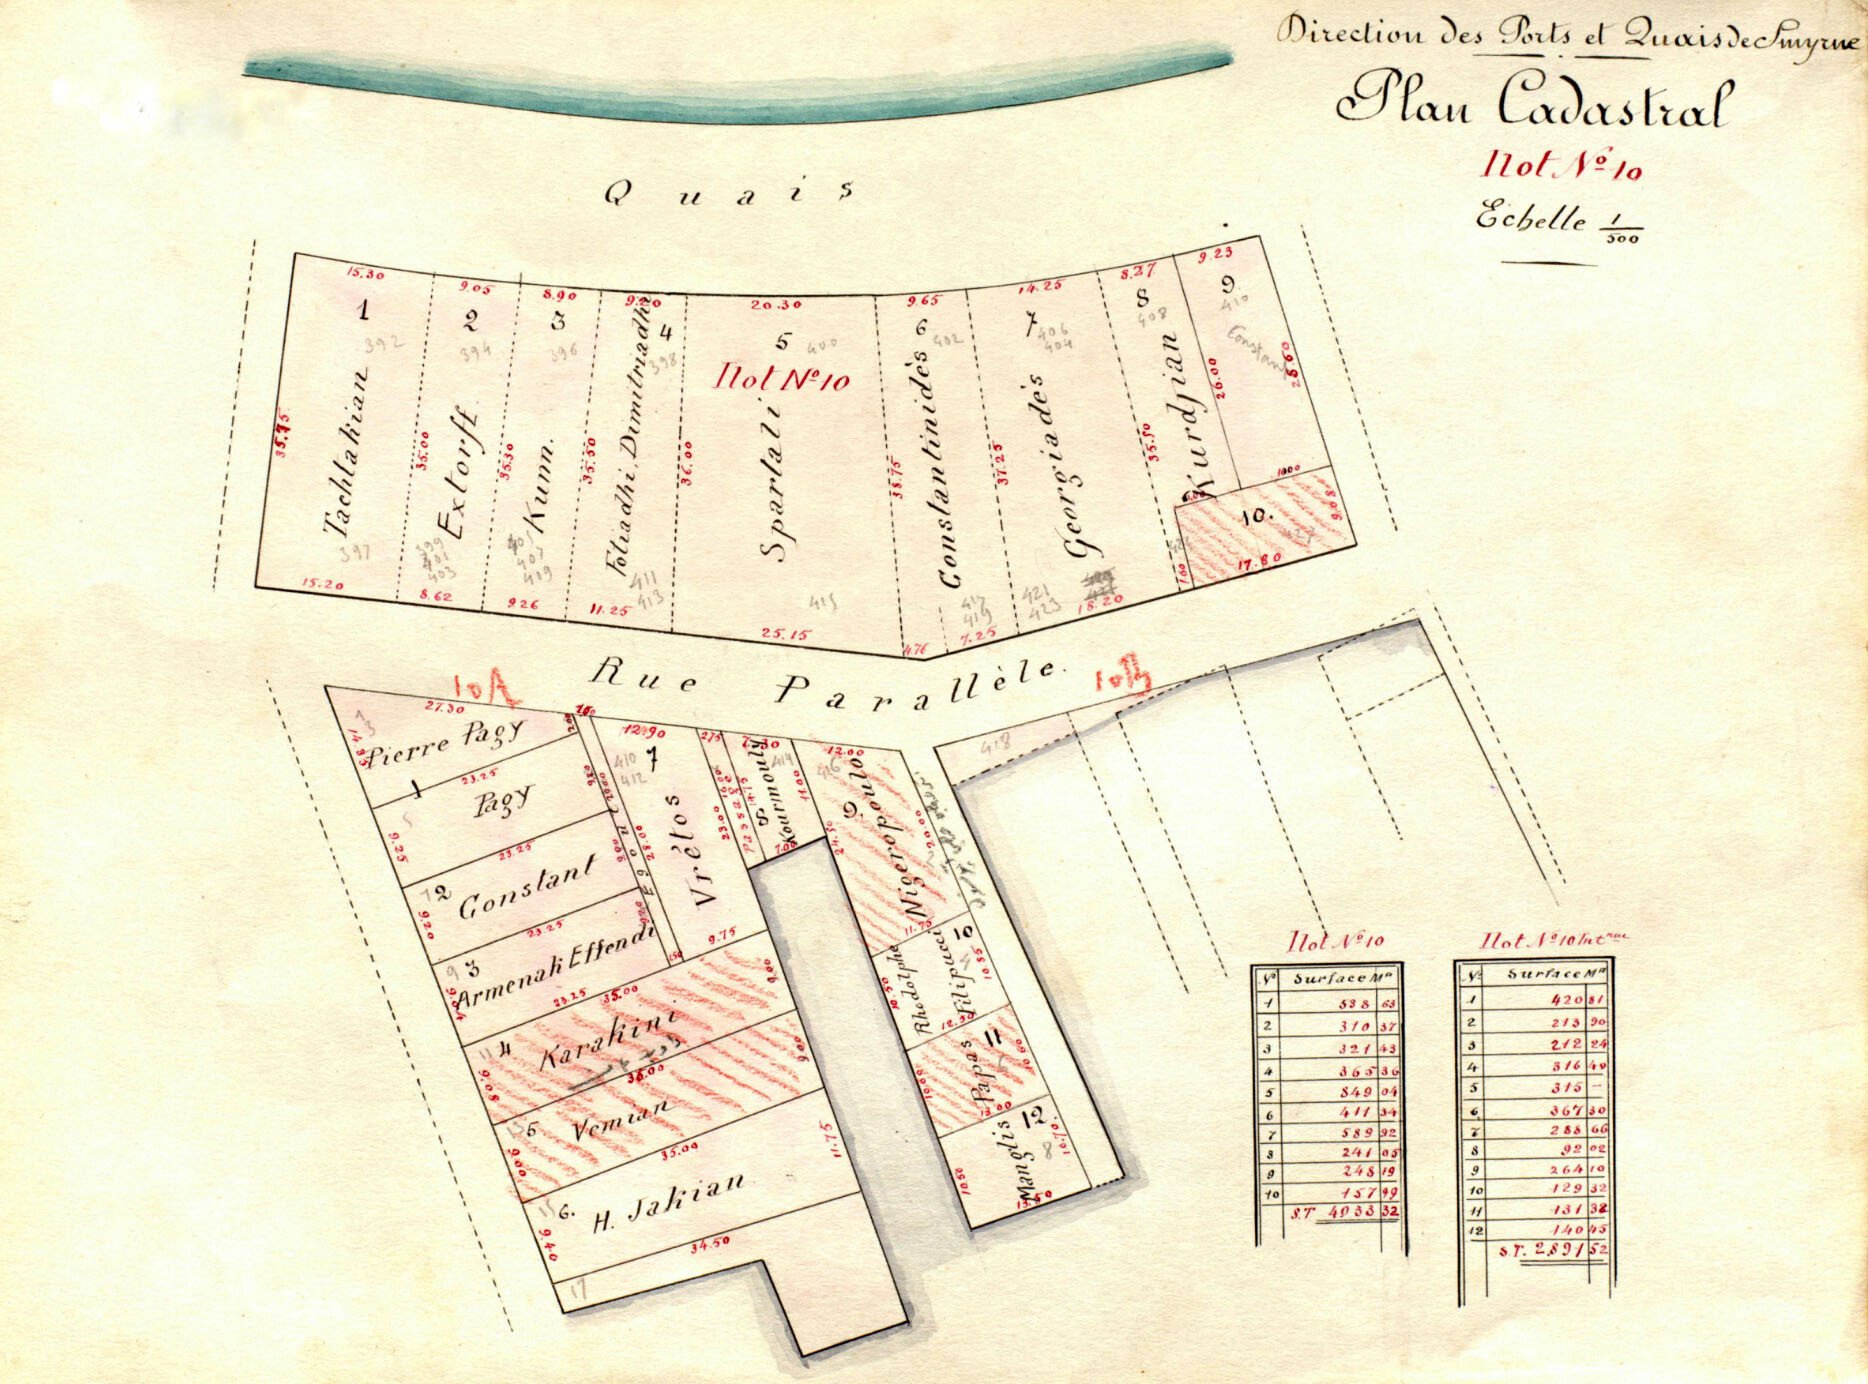 Direction des Ports et Quais de Smyrne
Plan Cadastral
Ilot Nº 10
Echelle 1/500
Quais
15.30
9.05
8.90
9.20
20.30
9.65
14.25
8.27
9.23
1
2
3
4
5
6
7
8
9
392
394
396
398
400
402
406
404
408
410
Constant
Ilot Nº 10
Tachtakian
Extorff
Kunn.
Foliadhi, Dimitriadhi
Spartali
Constantinidès
Georgiadès
Kurdjian
35.00
35.30
35.50
36.00
38.75
37.25
35.50
26.00
10.00
9.08
10.
397
399
401
403
407
409
411
413
415
417
419
421
423
427
15.20
8.62
926
11.25
25.15
4.76
7.25
18.20
17.80
Rue Parallèle.
10A
10B
27.30
Pierre Pagy
1
23.25
Pagy
9.25
23.25
2
Constant
9.20
23.25
3
Armenak Effendi
23.25
35.00
4
Karakini
9.08
36.00
5.
Vemian
9.00
35.00
6.
H. Jakian
11.75
9.40
34.50
17
Egout
12.90
7
410
412
Vrétos
23.00
9.75
2.75
Passage
8
Kourmouly
414
11.00
7.00
12.00
416
9.
Nigeropoulos
24.50
20.00
11.75
10
Rhodolphe Filipucci
10.55
12.50
11
Papas
10.00
13.00
12.
Manglis
8
10.50
13.50
418
Ilot Nº 10
Nº Surface Mᵗ
1 538 63
2 310 37
3 321 43
4 365 36
5 849 04
6 411 34
7 589 92
8 241 05
9 248 19
10 157 99
S.T 4033 32
Ilot Nº 10 Int rue
Nº Surface Mᵗ
1 420 81
2 213 90
3 212 24
4 316 40
5 315 —
6 367 30
7 288 66
8 92 02
9 264 10
10 129 32
11 131 32
12 140 45
S.T. 2.891 52